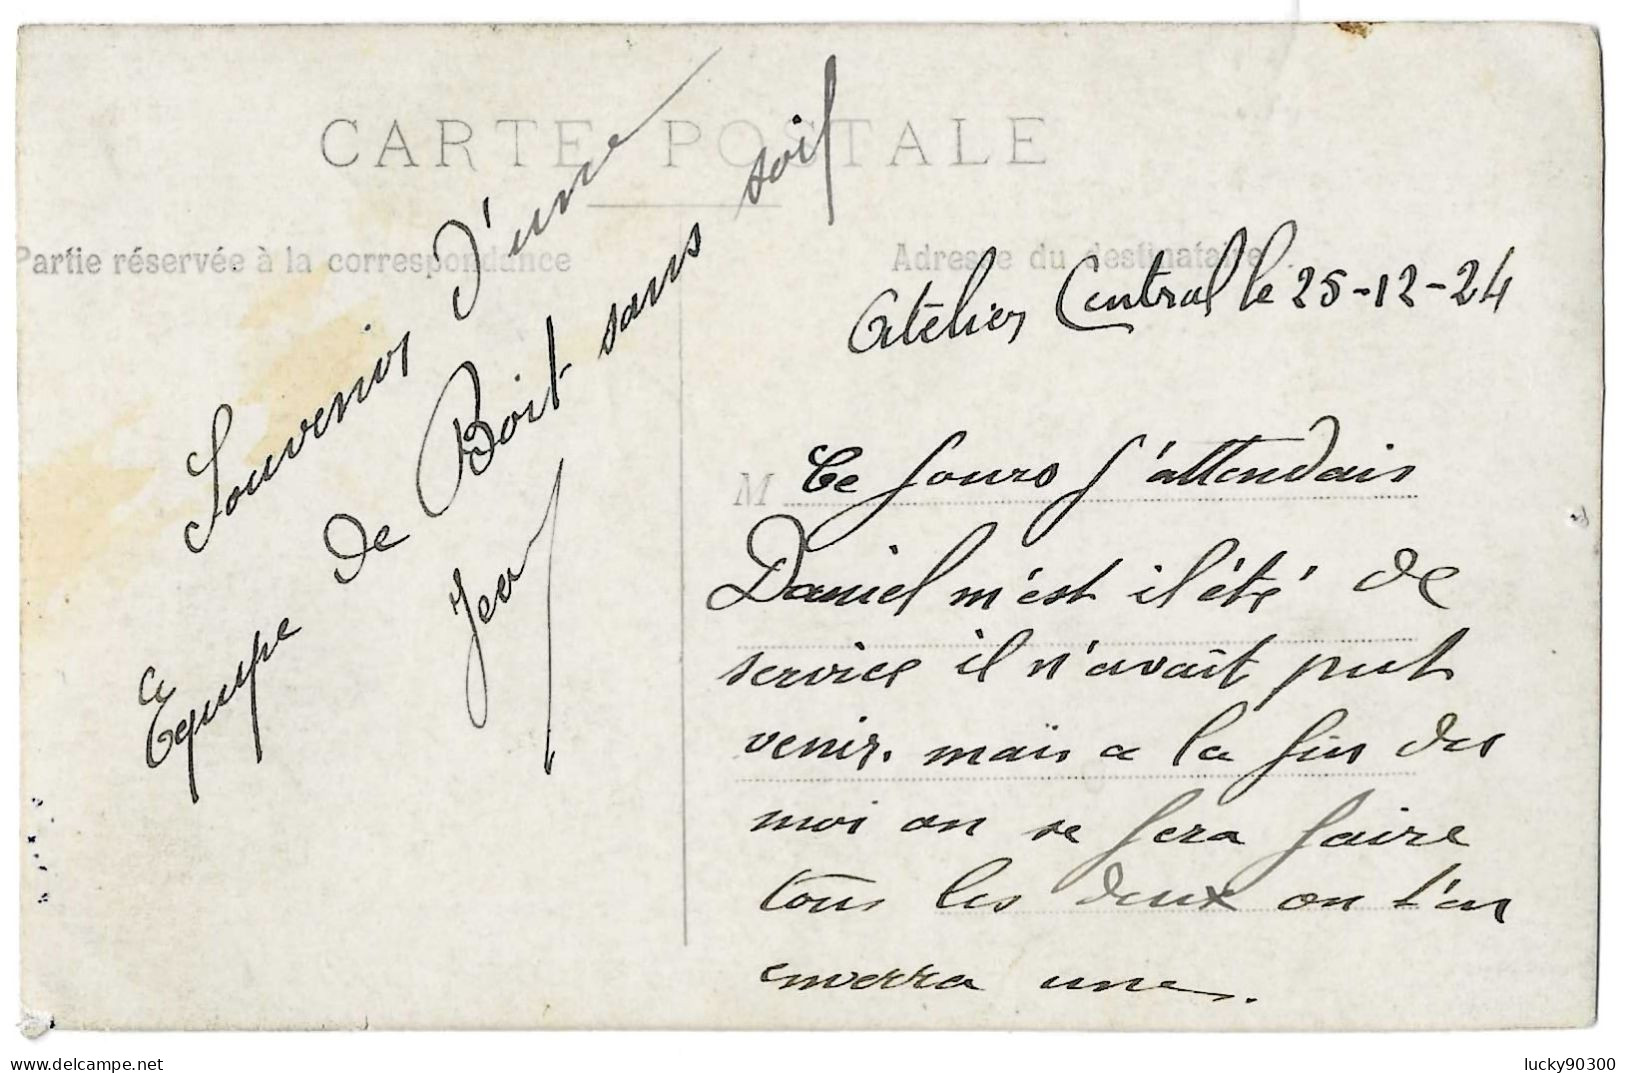 CARTE POSTALE
Partie réservée à la correspondance
Adresse du destinataire.
Souvenir d'une
Equipe de Boit sans soif
Jean
Atelier Central le 25-12-24
M
Ce jours j'attendais
Daniel m'est il été de
service il n'avait put
venir. mais a la fin du
moi on se fera faire
tous les deux on t'en
enverra une.
delcampe.net
lucky90300